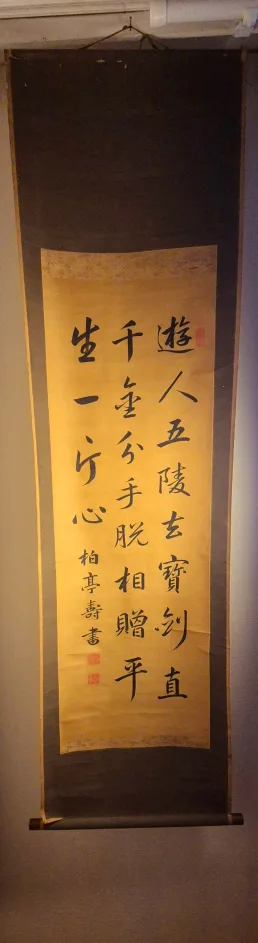 遊人五陵去寳劍直
千金分手脱相贈平
生一片心
柏亭壽書